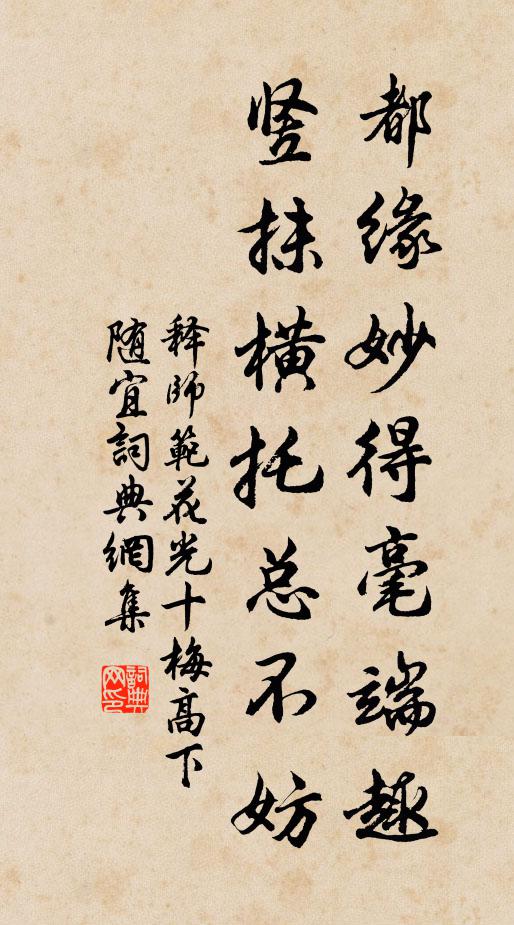 都缘妙得毫端趣
竖抹横托总不妨
释师範花光十梅高下
随宜詞典網集
詞典网印